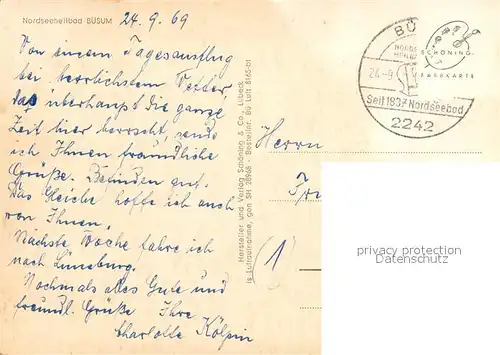 Nordseeheilbad BÜSUM
24.9.69
Von einem Tagesausflug
bei herrlichstem Wetter
das überhaupt die ganze
Zeit hier herrscht, sende
ich Ihnen freundliche
Grüße. Befinden gut.
Das Gleiche hoffe ich auch
von Ihnen.
Nächste Woche fahre ich
nach Lüneburg.
Nochmals alles Gute und
freundl. Grüße Ihre
Charlotte Kölpin
Hersteller und Verlag Schöning & Co., Lübeck
Luftaufnahme, SH 28968 Bestellnr. Bü Luft 8165 bt
BÜ
24.-9
Seit 1837 Nordseebad
2242
SCHÖNING-
Herrn
(1)
privacy protection